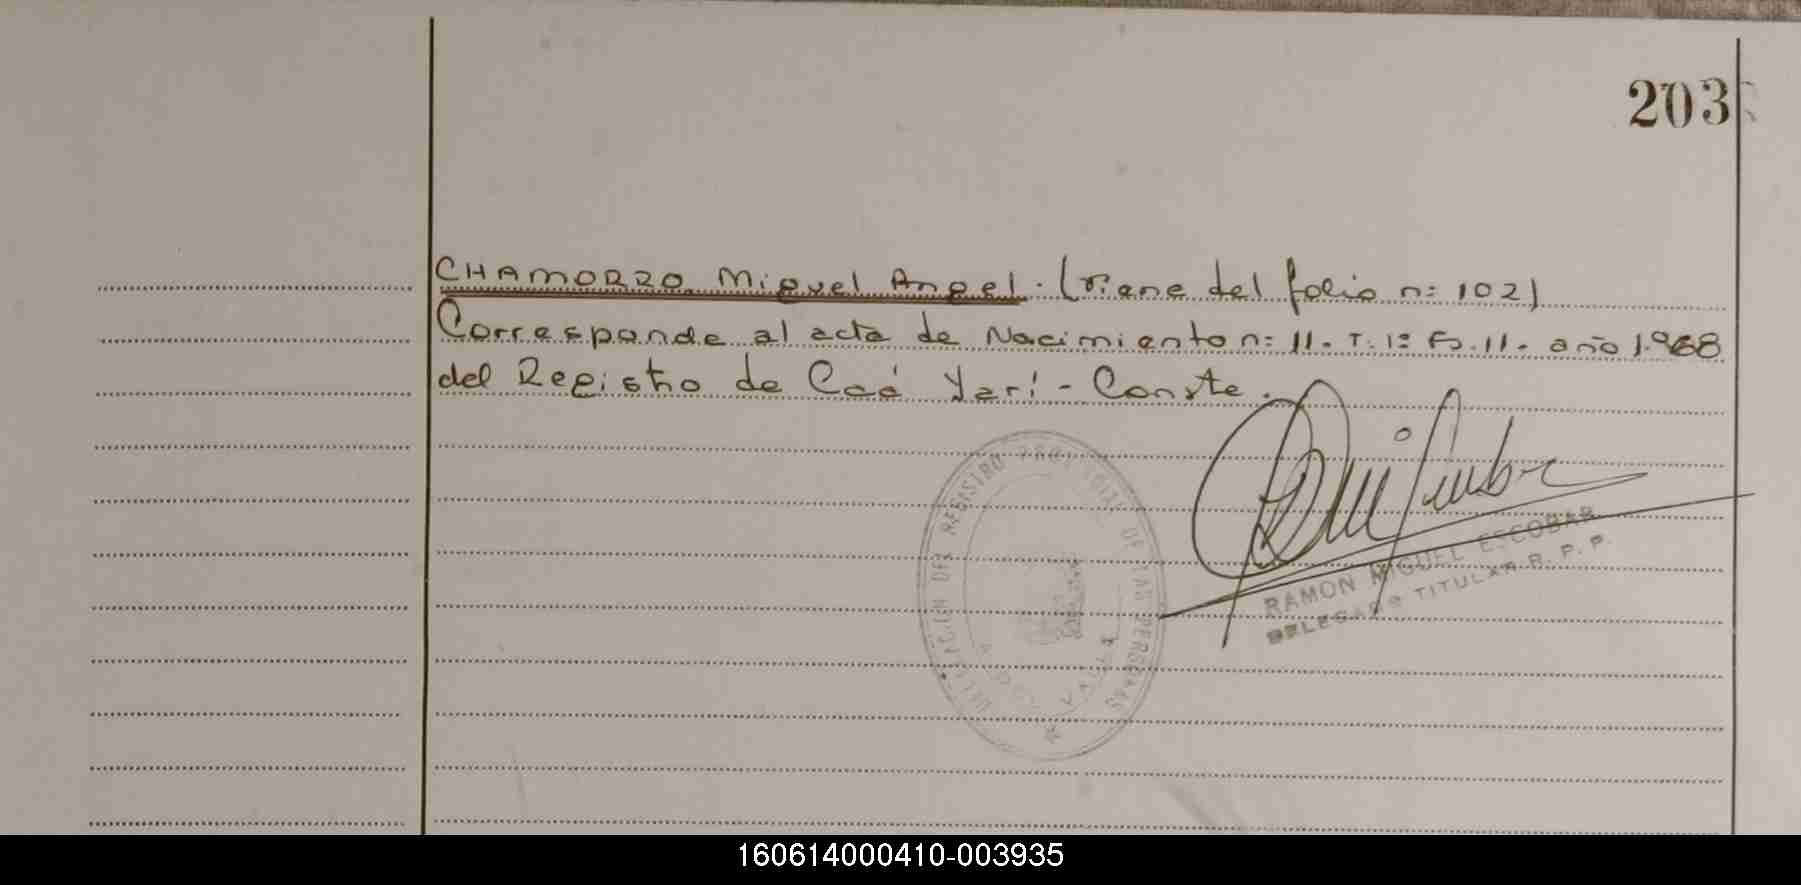 203
CHAMORRO Miguel Angel. (Viene del folio n: 102)
Corresponde al acta de Nacimiento n: 11. T. 1º Fº. 11. año 1.968
del Registro de Caá Yarí - Conste.
DELEGACION DEL REGISTRO PROVINCIAL DE LAS PERSONAS
RAMON MIGUEL ESCOBAR
DELEGADO TITULAR R. P. P.
160614000410-003935